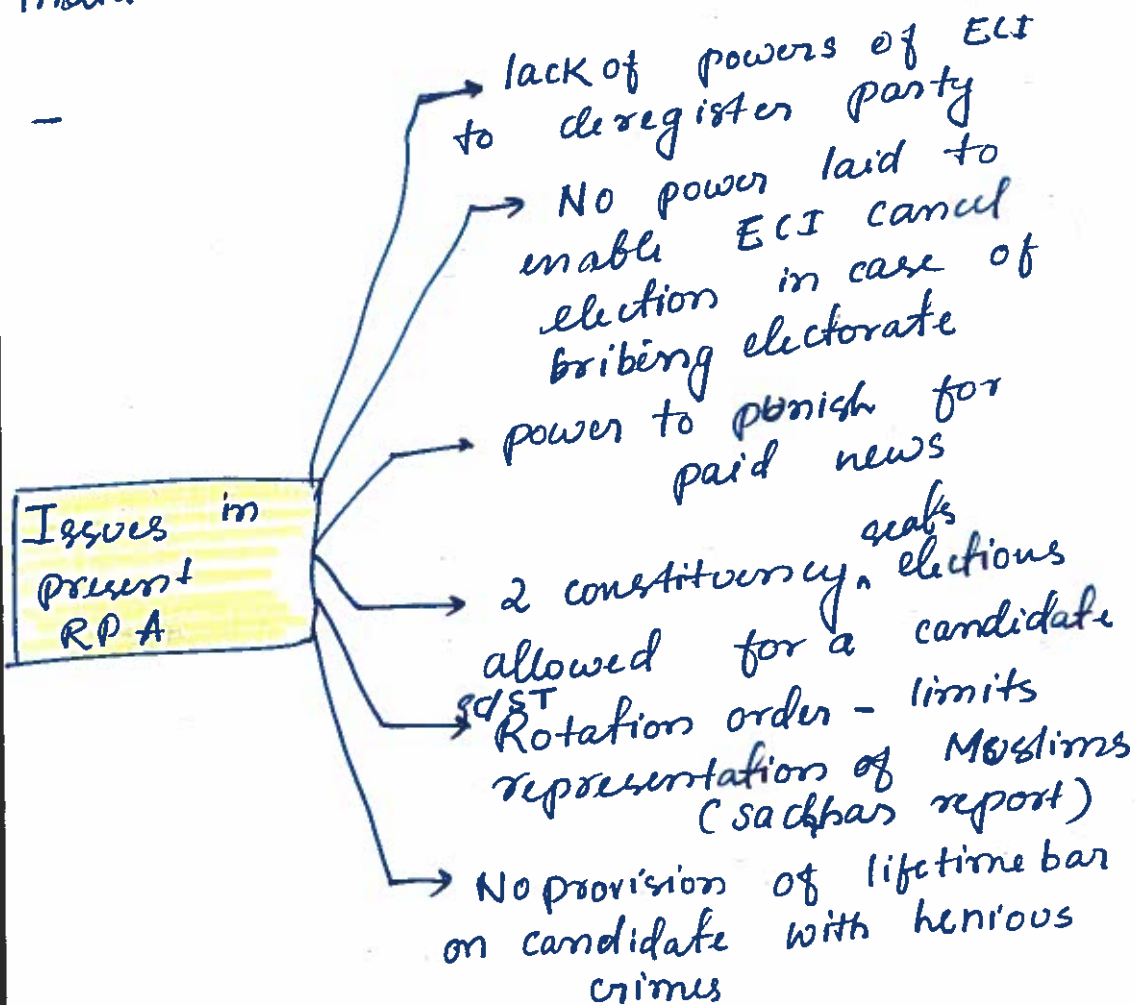 lack of powers of ECI
to deregister party
No power laid to
enable ECI cancel
election in case of
bribing electorate
power to punish for
paid news
Issues in
present
RPA
seats
2 constituency ^ elections
allowed for a candidate
SC/ST
Rotation order - limits
representation of Muslims
(sachhar report)
No provision of lifetime bar
on candidate with henious
crimes